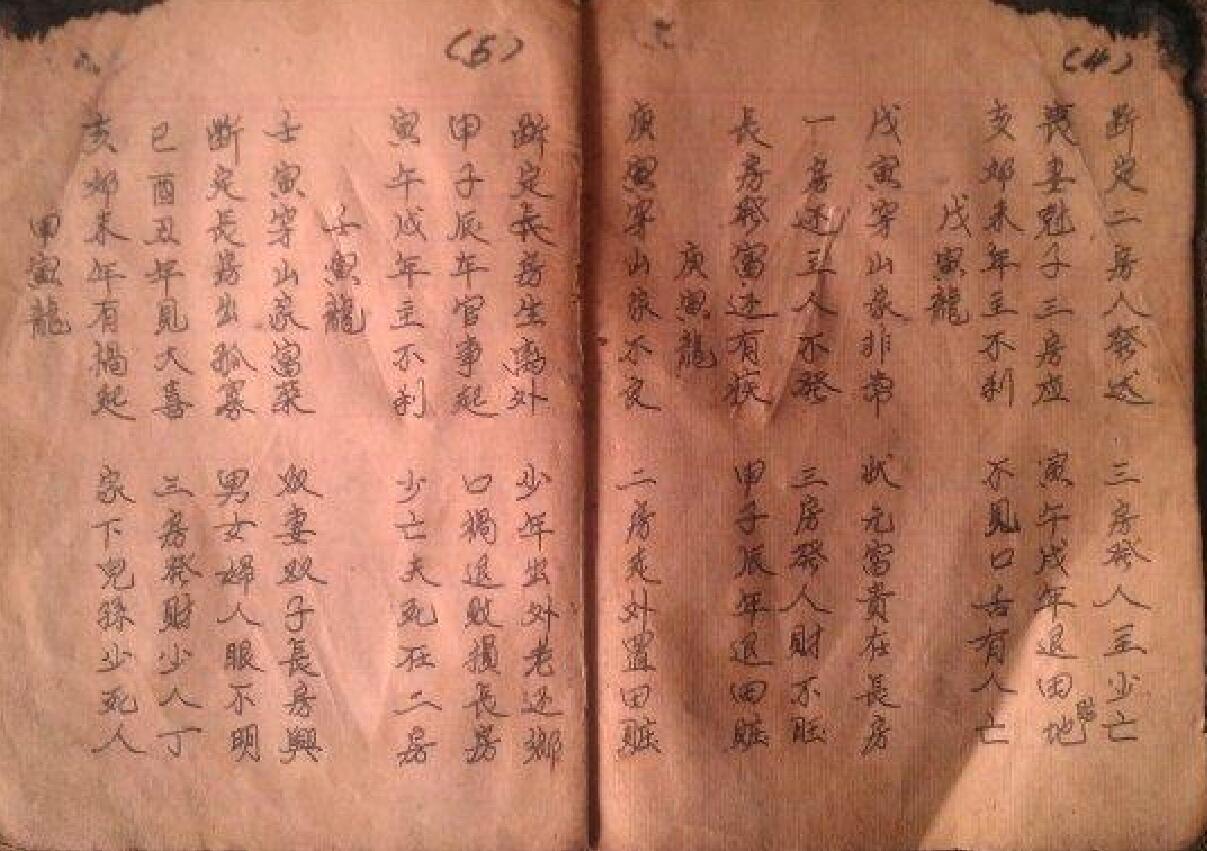 (4)
断定二房人發達 三房發人主少亡
喪妻尅子三房应 寅午戌年退田地
亥卯未年主不利 不見口舌有人亡
戊寅龍
戊寅穿山家非常 狀元富貴在長房
一房还主人不發 三房發人財不旺
長房發富还有疾 申子辰年退田賍
庚寅龍
庚寅穿山家不良 二房走外置田賍
(5)
断定長房生离外 少年出外老还鄉
申子辰年官事起 口禍退敗損長房
寅午戌年主不利 少亡夫死在二房
壬寅龍
壬寅穿山家富荣 双妻双子長房興
断定長房出孤寡 男女婦人眼不明
巳酉丑年見大喜 三房發財少人丁
亥卯未年有禍起 家下兒孫少死人
甲寅龍